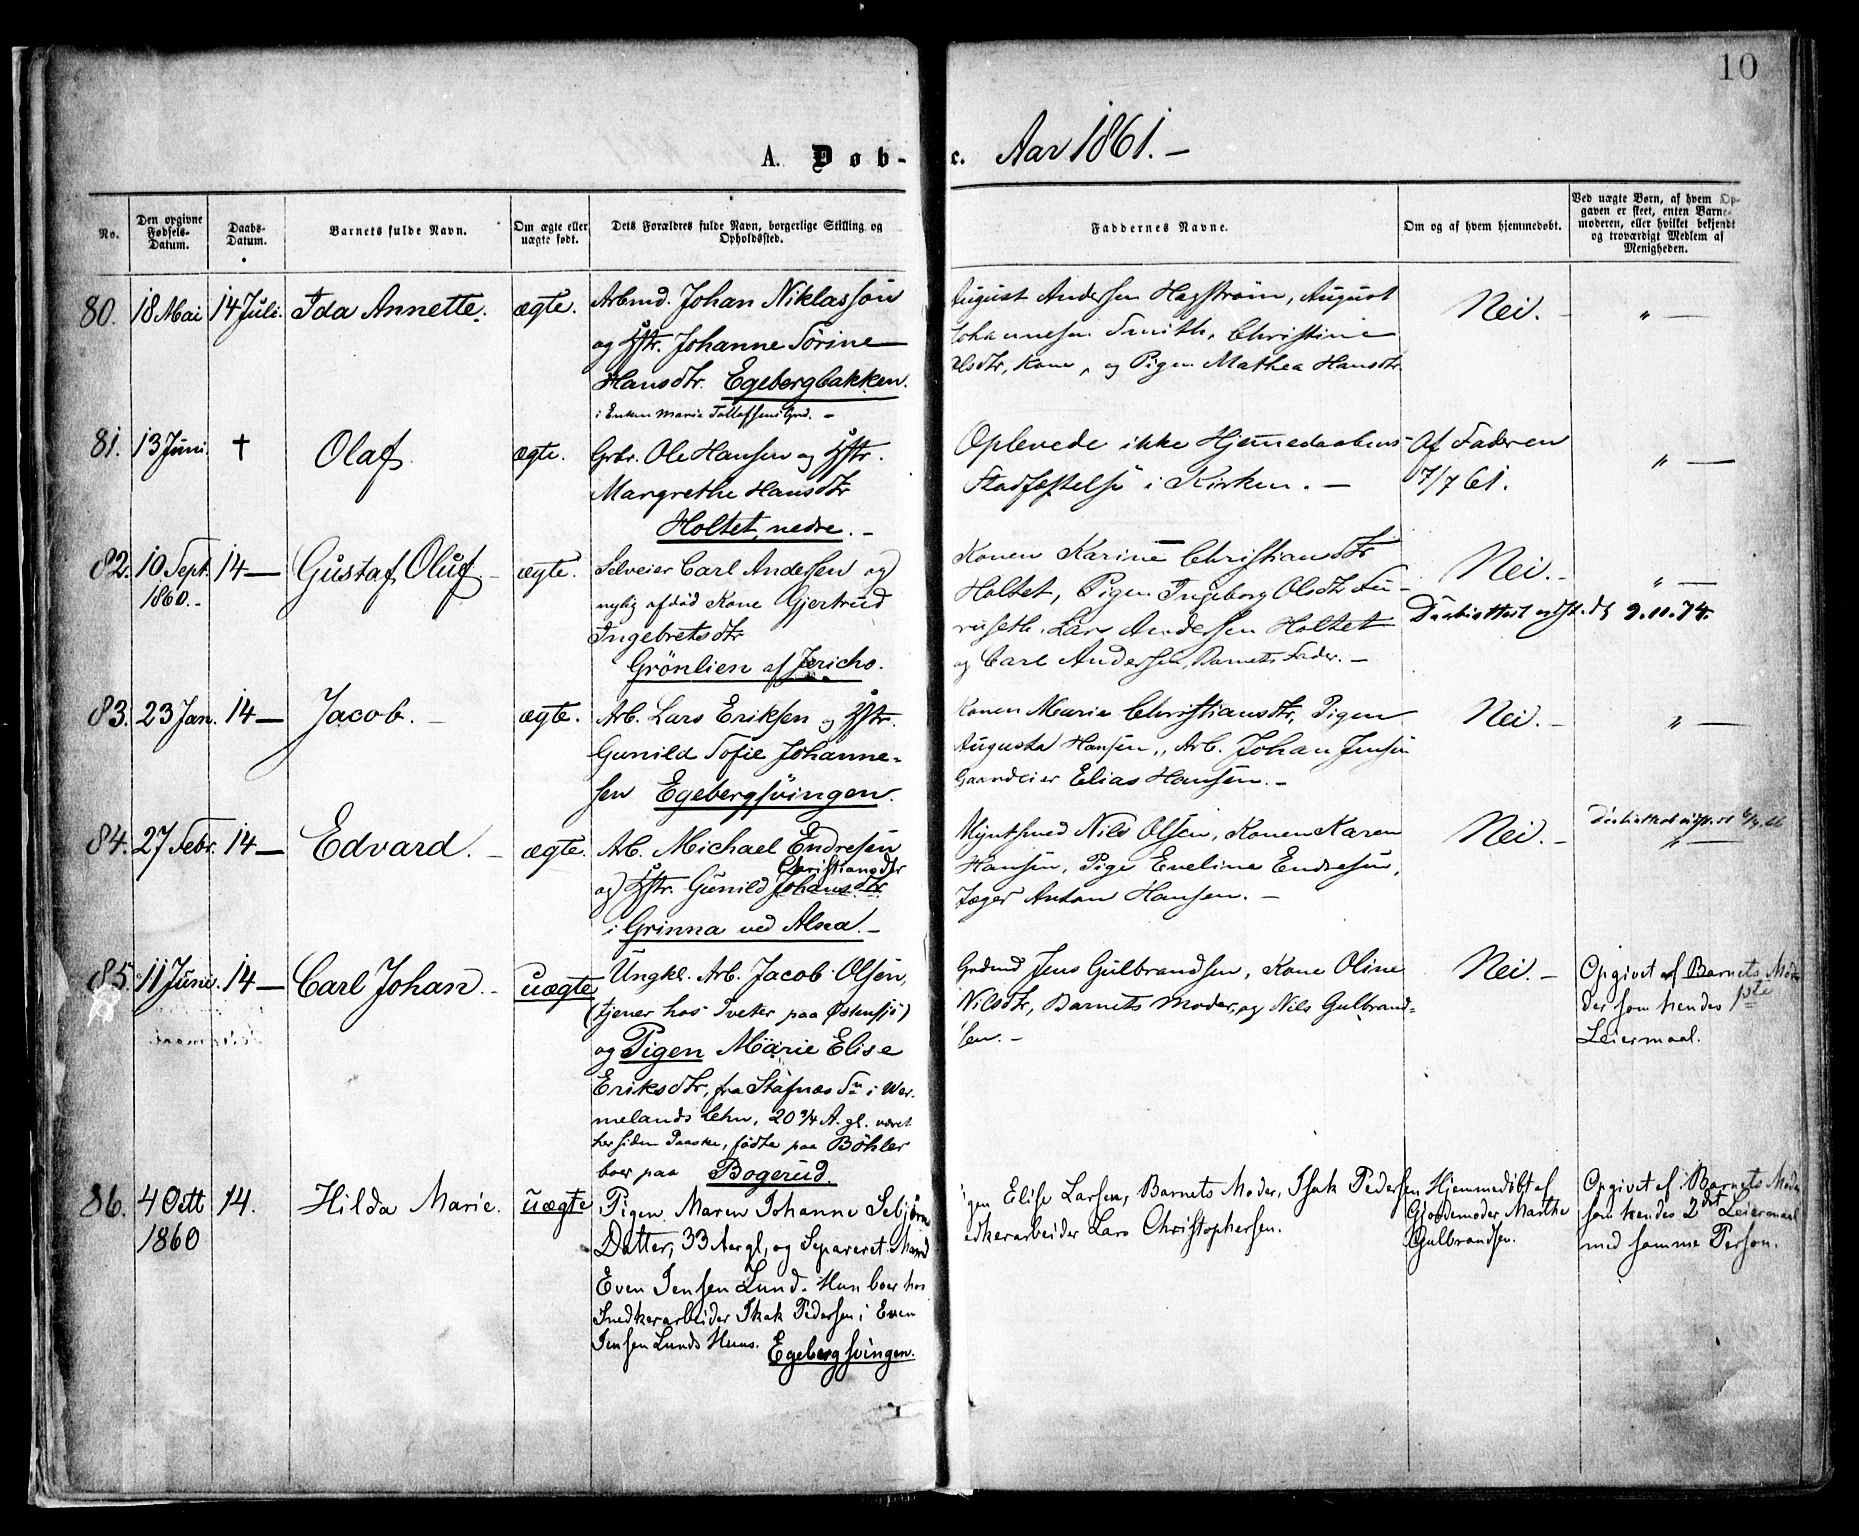 10
A. Døb-
c. Aar 1861. –
No.
Den opgivne
Fødsels-
Datum.
Daabs-
Datum.
Barnets fulde Navn.
Om ægte eller
uægte født.
Dets Forældres fulde Navn, borgerlige Stilling og
Opholdssted.
Faddernes Navne.
Om og af hvem hjemmedøbt.
Ved uægte Børn, af hvem Op-
gaven er skeet, enten Barne-
moderen, eller hvilket bekjendt
og troværdigt Medlem af
Menigheden.
80. 18 Mai 14 Juli. Ida Annette. ægte.
Arbmd. Johan Niklasson
og Hstr. Johanne Sørine
Hansdtr. Egebergbakken.
i Enken Marie Tollefsens Grd. –
August Andersen Hagstrøm, August
Johannesen Smith, Christine
Olsdtr, Kone, og Pigen Mathea Hansdtr
Nei. –
" —
81. 13 Juni. † Olaf. ægte.
Grbr. Ole Hansen og Hstr.
Margrethe Hansdtr
Holtet, nedre. –
Oplevede ikke Hjemmedaabens-
Stadfæstelse i Kirken. –
Af Faderen
17/7 61.
" —
82. 10 Sept. 14 — Gustaf Oluf – ægte.
1860. –
Selveier Carl Andersen og
nylig afdød Kone Gjertrud
Ingebretsdtr
Grönlien af Jericho.
Konen Karine Christiansdtr
Holtet, Pigen Ingeborg Olsdtr Fu-
ruseth, Lars Andersen Holtet
og Carl Andersen, Barnets Fader. –
Nei. –
" —
Daabsattest udst. d. 9. 11. 74.
83. 23 Jan. 14 — Jacob. – ægte.
Arb. Lars Eriksen og Hstr.
Gunild Sofie Johanne-
sen Egebergsvingen.
Konen Marie Christiansdtr, Pigen
Augusta Hansen, Arb. Johan Jensen
Gaardeier Elias Hansen. –
Nei. –
" —
84. 27 Febr. 14 — Edvard. – ægte.
Arb. Michael Endresen
Christiansdtr
og Hstr. Gunild Johansdtr.
i Grinna ved Alna. –
Myntsmed Nils Olsen, Konen Karen
Hansen, Pige Eveline Endresen,
Jæger Anton Hansen. –
Nei. –
" —
85. 11 Juni. 14 — Carl Johan. – uægte
Ungkl. Arb. Jacob Olsen,
(tjener hos Iveter paa Østensjö)
og Pigen Marie Elise
Eriksdtr, fra Stafnæs Sn i Wer-
melands Lehn, 20 3/4 A. gl. været
her siden Paaske, födte paa Böhler
boer paa Bogerud.
Grdmd Jens Gulbrandsen, Kone Oline
Nilsdtr, Barnets Moder, og Nils Gulbrand-
sen. –
Nei. –
Opgivet af Barnets Mo-
der som hendes 1ste
Leiermaal.
86. 4 Octt 14. Hilda Marie. uægte
1860
Pigen Maren Johanne Sebjørns
Datter, 33 Aar gl, og Separeret Mand
Even Jensen Lund. Hun boer hos
Snedkerarbeider Isak Pedersen i Even
Jensen Lunds Huus. Egebergsvingen.
Pigen Elise Larsen, Barnets Moder, Isak Pedersen
Snedkerarbeider Lars Christophersen.
Hjemmedöbt af
Gjordemoder Marthe
Gulbrandsen.
Opgivet af Barnets Moder
som hendes 2det Leiermaal
med samme Person.